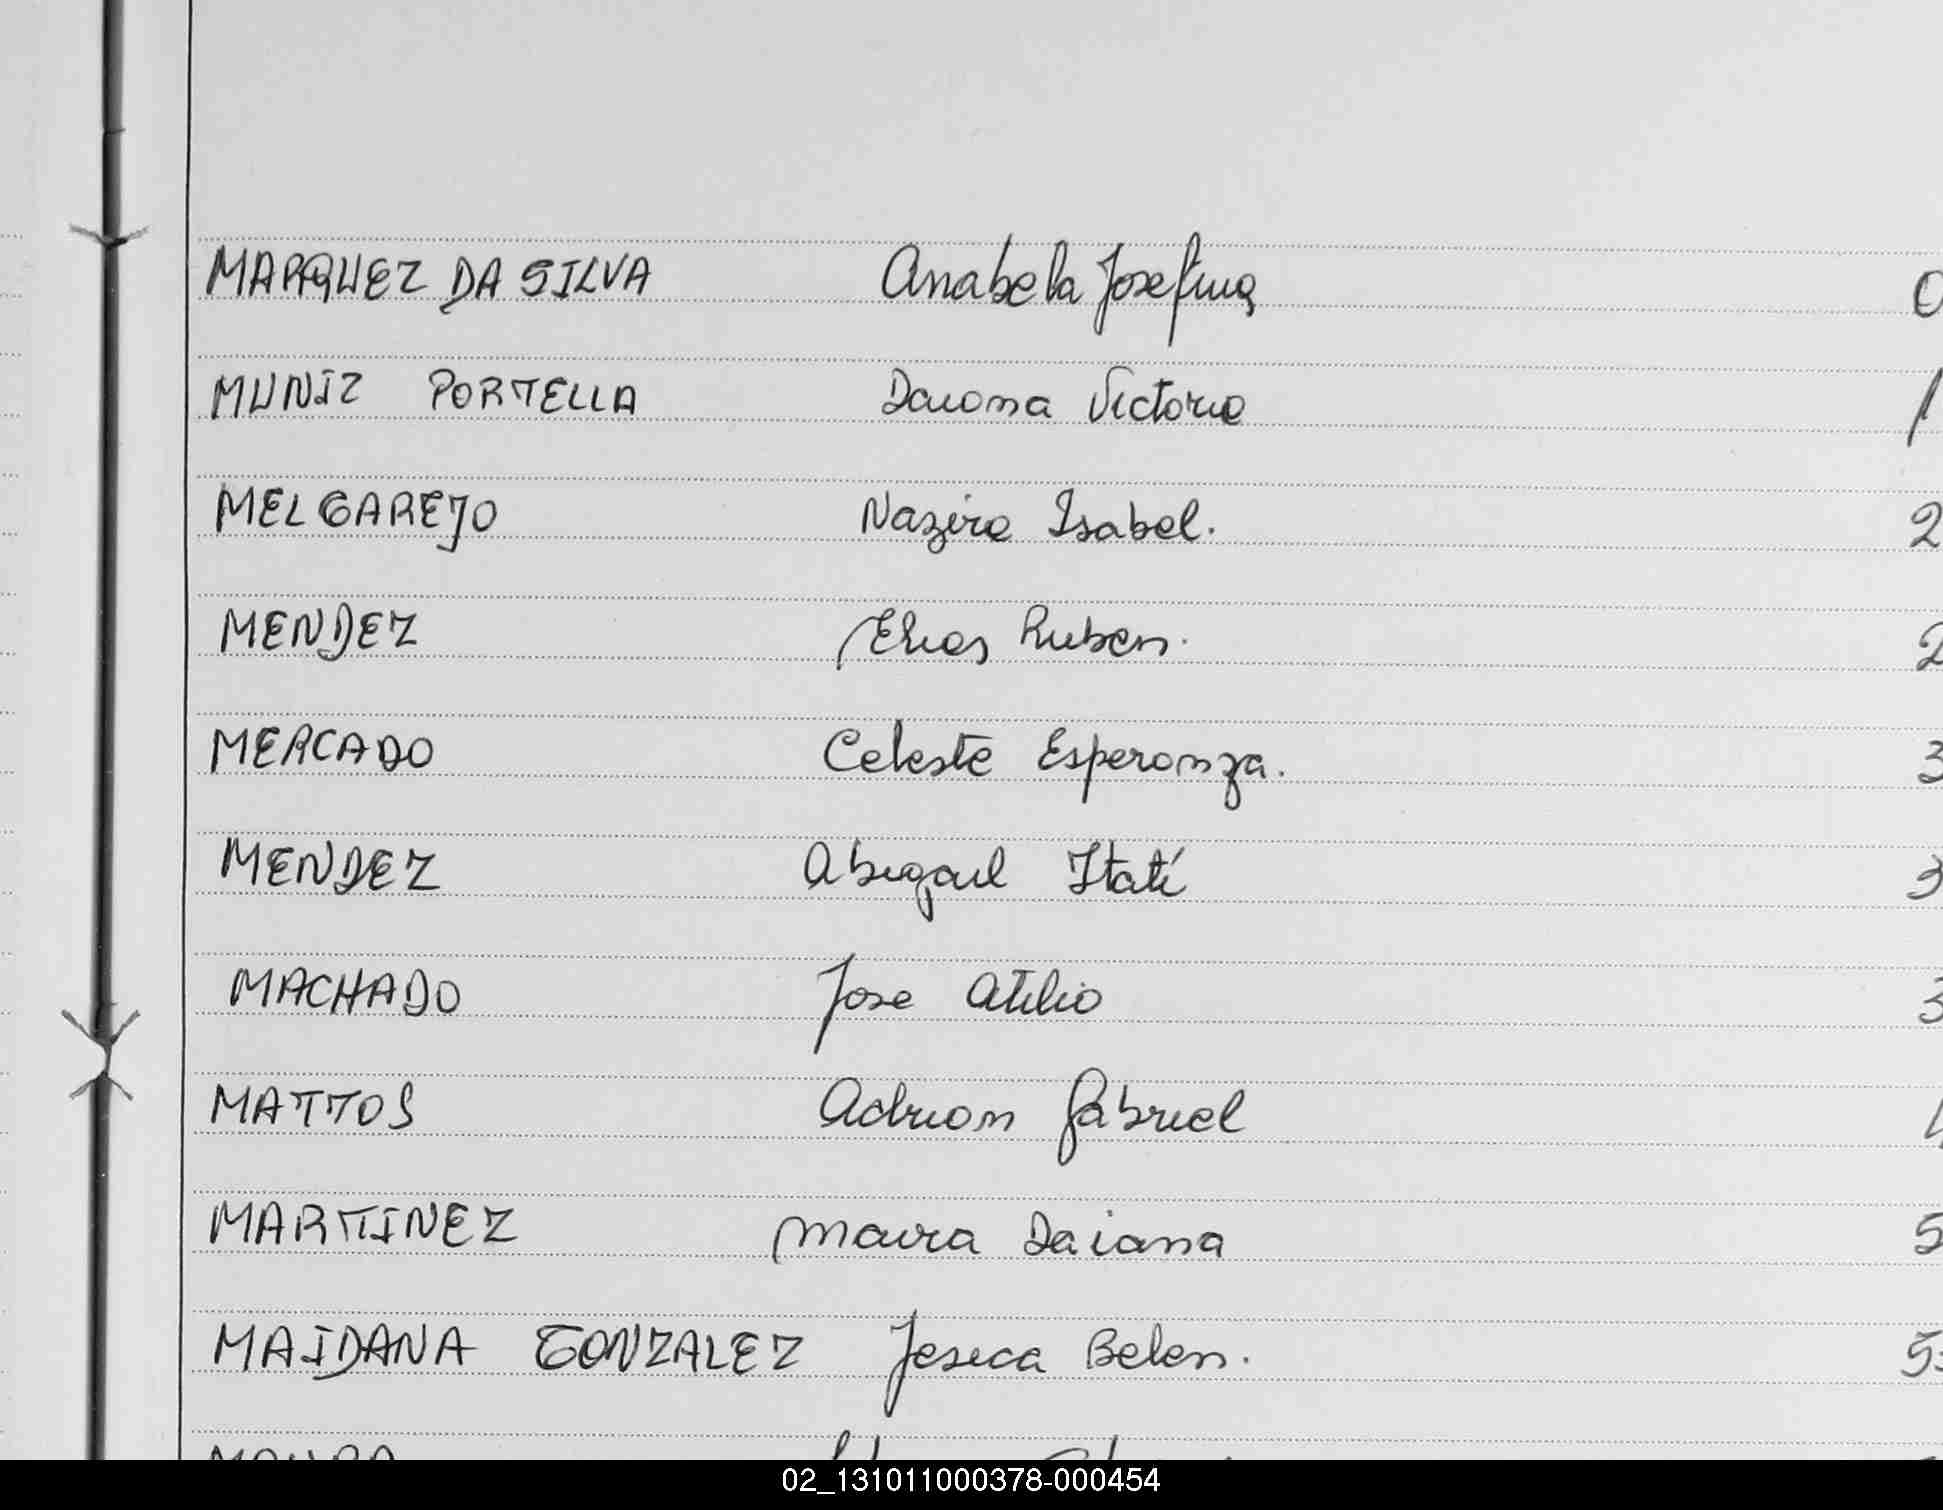 MARQUEZ DA SILVA Anabela Josefina 0
MUNIZ PORTELLA Daiana Victoria 1
MELGAREJO Nazira Isabel. 2
MENDEZ Elias Ruben. 2
MERCADO Celeste Esperanza. 3
MENDEZ Abigail Itatí 3
MACHADO Jose Atilio 3
MATTOS Adrian Gabriel
MARTINEZ Maira Daiana 5
MAIDANA GONZALEZ Jesica Belen. 5
02_131011000378-000454